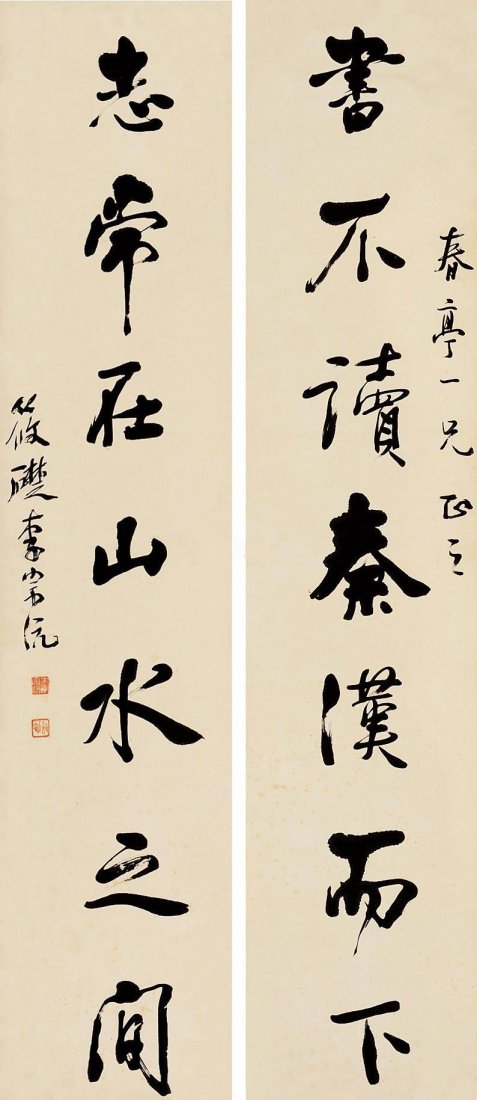 春亭一兄正之
書不讀秦漢而下
志常在山水之間
筱礎李沅